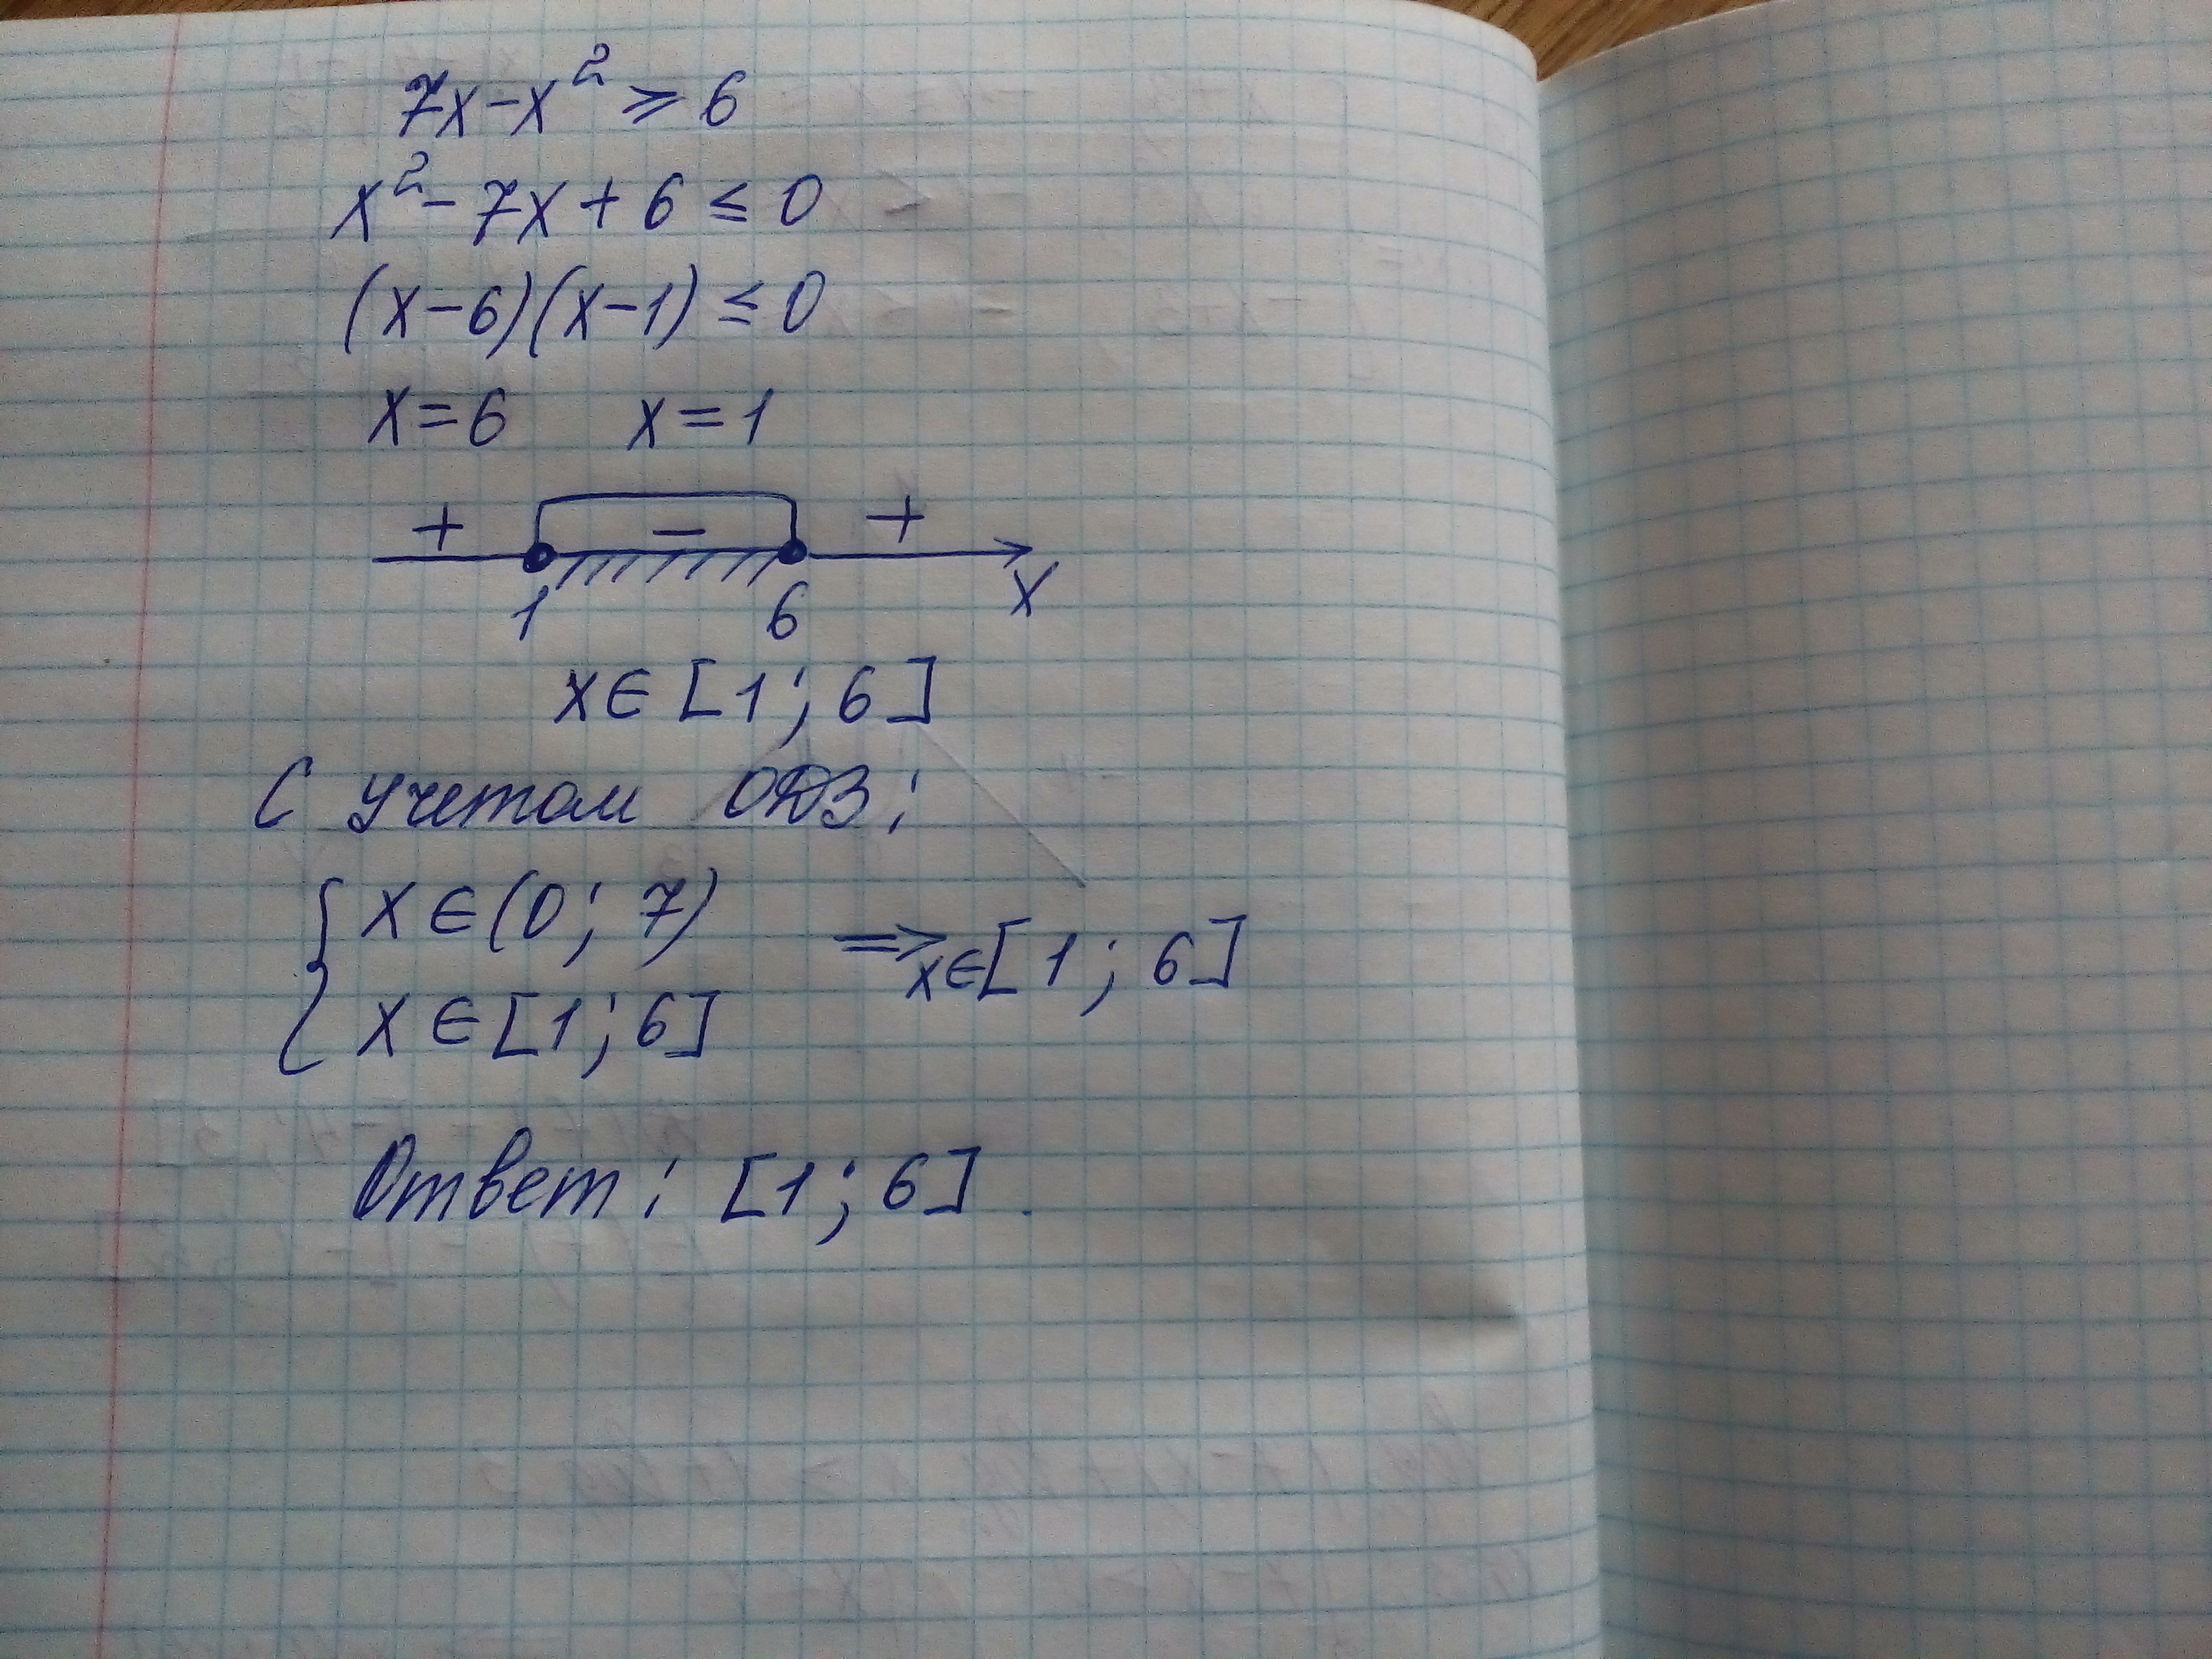 7x-x² ⩾ 6
x²-7x+6 ≤ 0
(x-6)(x-1) ≤ 0
x=6 x=1
+ - +
1 6 x
x∈[1;6]
С учетом ОДЗ:
{ x∈(0;7)
x∈[1;6] => x∈[1;6]
Ответ: [1;6].